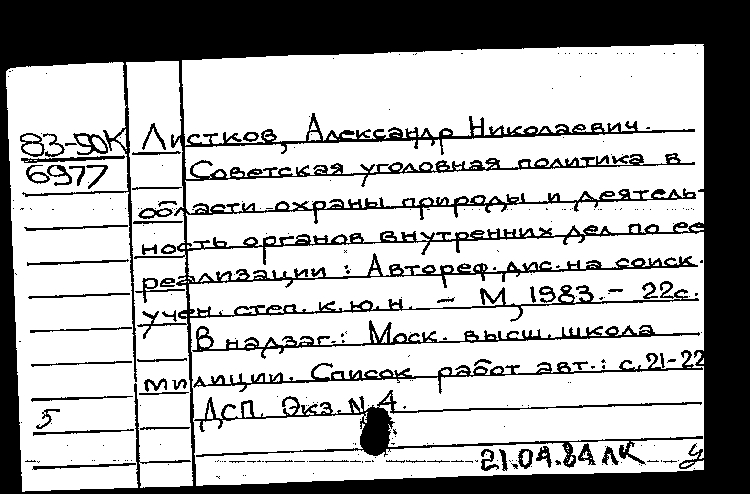 83-50К Листков, Александр Николаевич.
6977 Советская уголовная политика в
области охраны природы и деятель-
ность органов внутренних дел по ее
реализации : Автореф. дис. на соиск.
учен. степ. к.ю.н. – М, 1983. – 22с.
В надзаг.: Моск. высш. школа
милиции. Список работ авт.: с.21-22
5 ДСП. Экз. N 4.
21.04.84 ЛК у